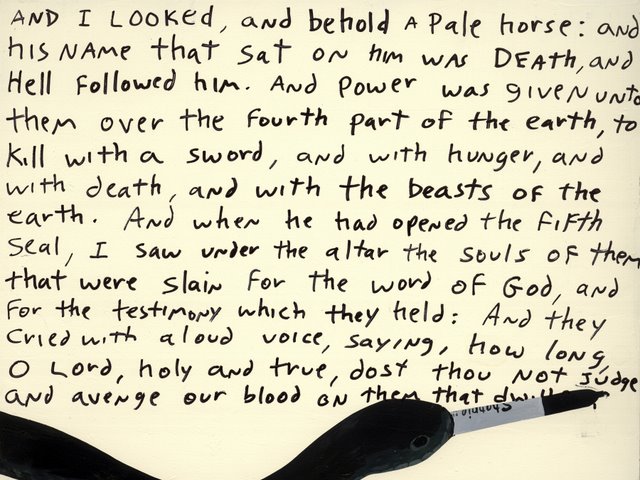 AND I LOOKED, and behold A Pale horse: and
his NAME that sat on him was DEATH, and
Hell Followed him. And Power was given unto
them over the fourth part of the earth, to
Kill with a sword, and with hunger, and
with death, and with the beasts of the
earth. And when he had opened the Fifth
Seal, I saw under the altar the souls of them
that were slain for the word of God, and
For the testimony which they held: And they
Cried with a loud voice, saying, how long,
O Lord, holy and true, dost thou not judge
and avenge our blood on them that